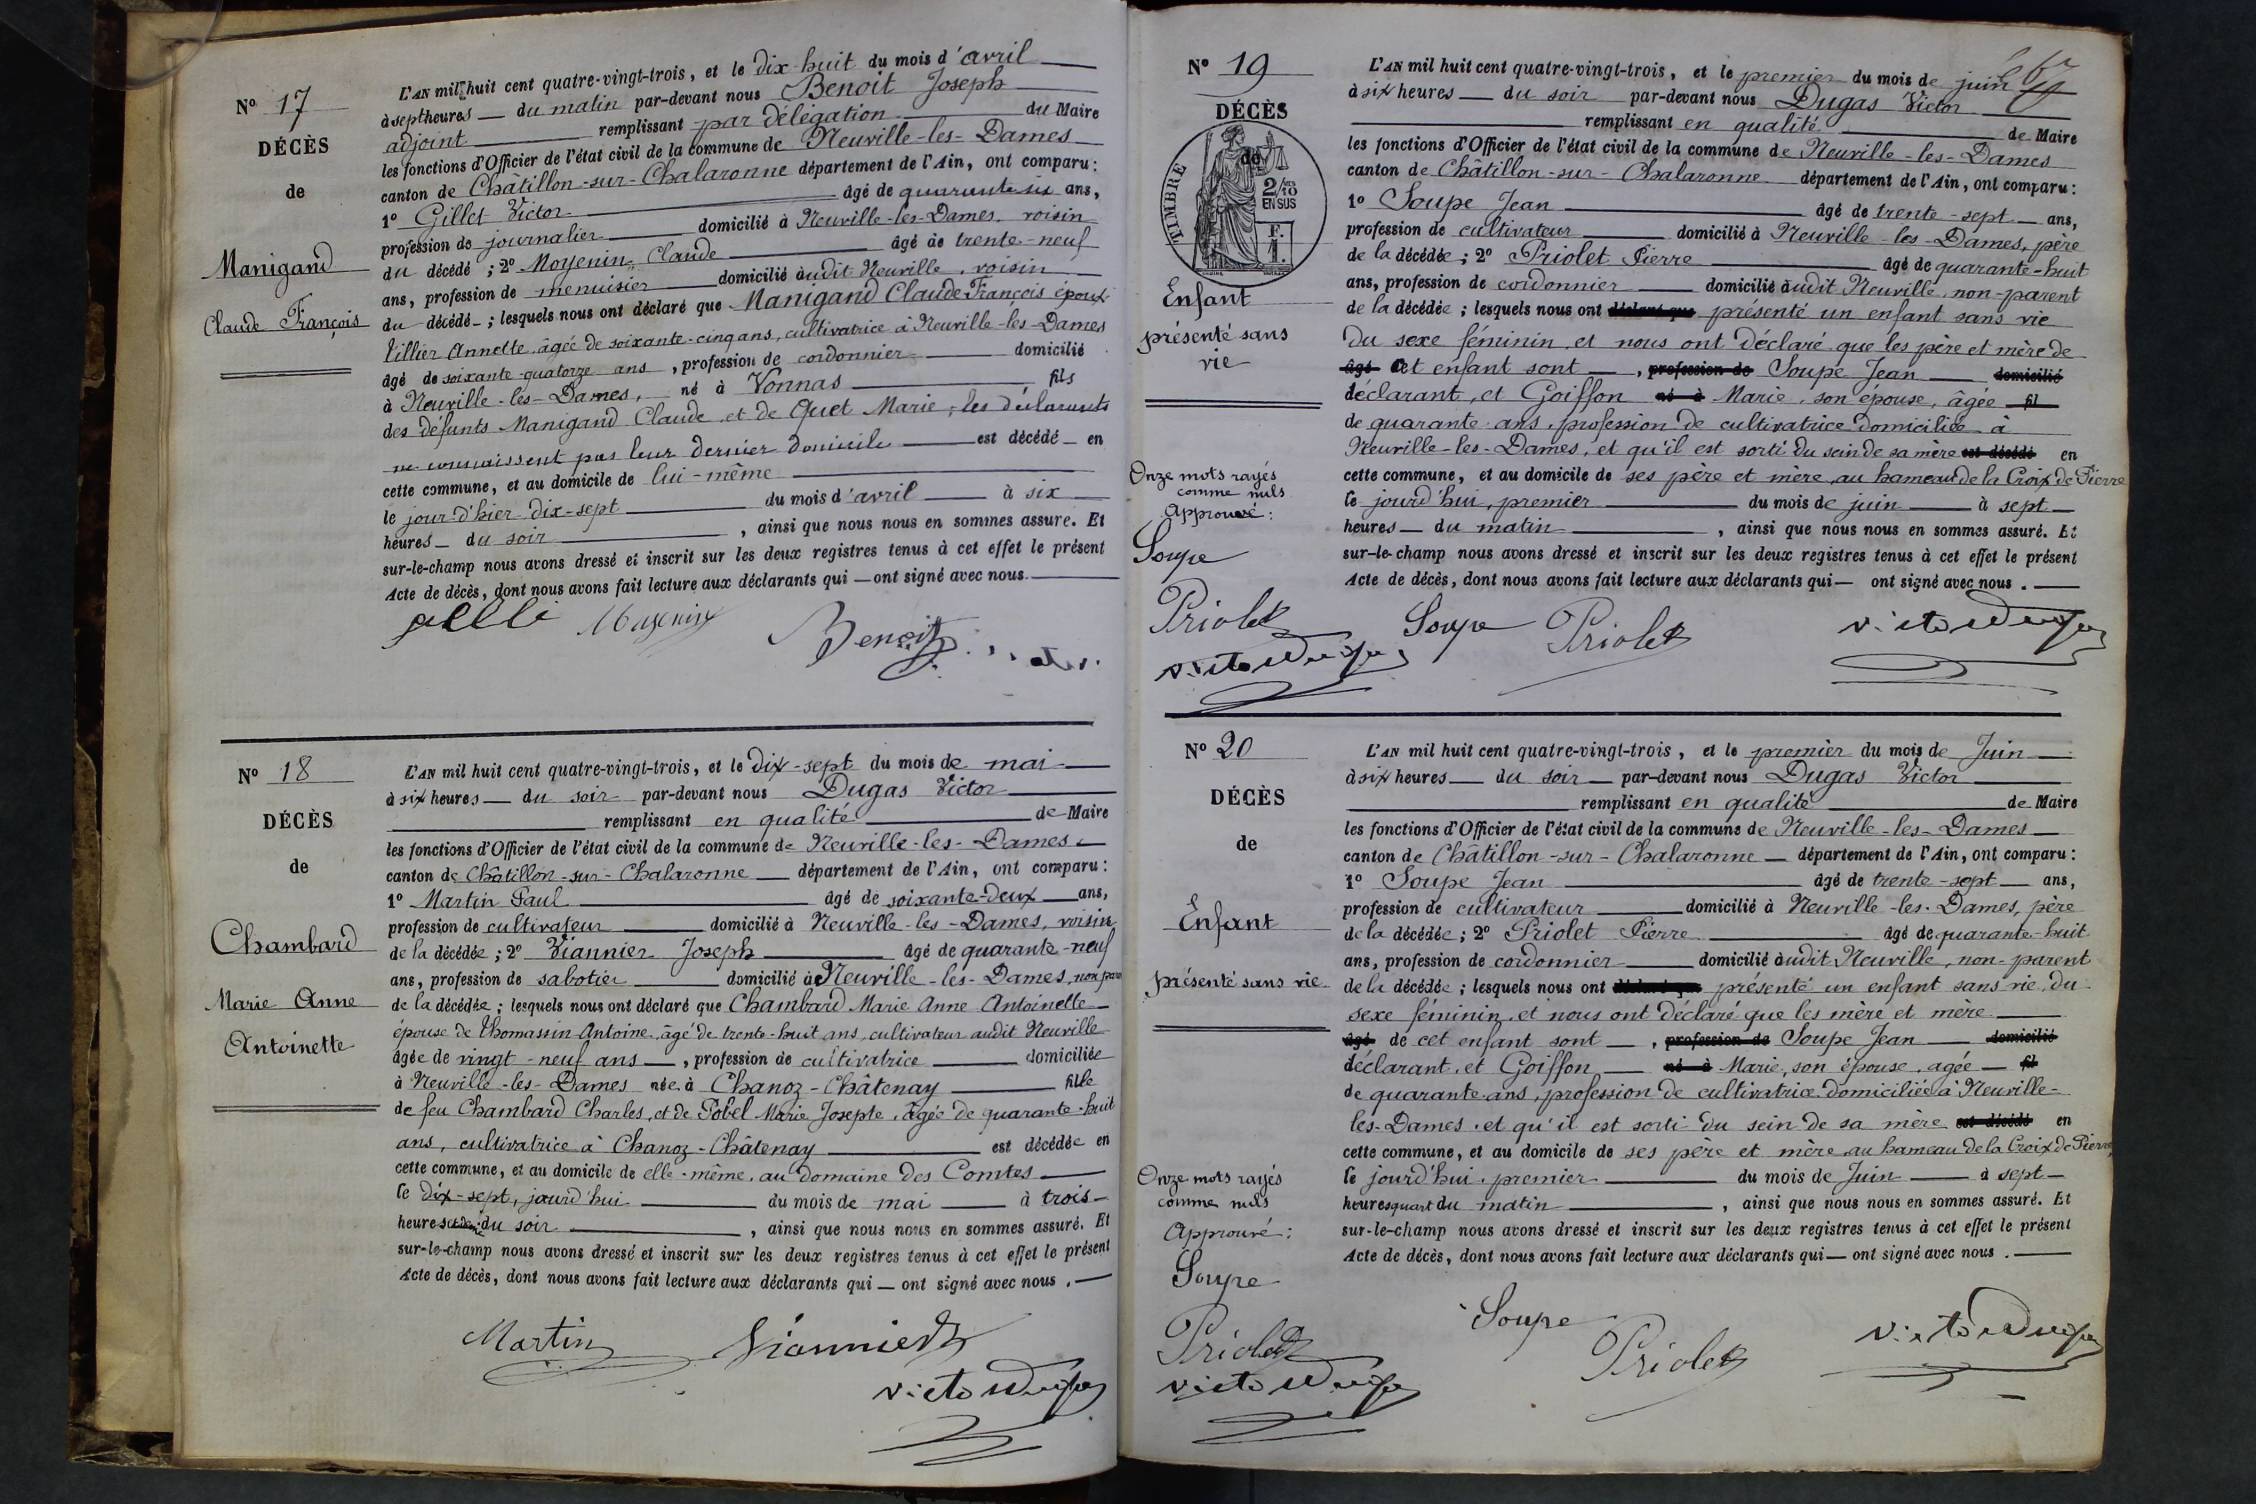 N° 17
DÉCÈS
de
Manigand
Claude François
L'AN mil huit cent quatre-vingt-trois, et le dix-huit du mois d'avril
à sept heures du matin par-devant nous Benoit Joseph
adjoint remplissant par délégation du Maire
les fonctions d'Officier de l'état civil de la commune de Neuville-les-Dames
canton de Châtillon-sur-Chalaronne département de l'Ain, ont comparu:
1° Gillet Victor âgé de quarante six ans,
profession de journalier domicilié à Neuville-les-Dames, voisin
du décédé; 2° Moyenin Claude âgé de trente-neuf
ans, profession de menuisier domicilié audit Neuville, voisin
du décédé; lesquels nous ont déclaré que Manigand Claude François époux
Tillier Annette, âgée de soixante-cinq ans, cultivatrice à Neuville-les-Dames
âgé de soixante-quatorze ans, profession de cordonnier domicilié
à Neuville-les-Dames, né à Vonnas fils
des défunts Manigand Claude, et de Quet Marie, les déclarants
ne connaissent pas leur dernier domicile est décédé en
cette commune, et au domicile de lui-même
le jour d'hier dix-sept du mois d'avril à six
heures du soir, ainsi que nous nous en sommes assuré. Et
sur-le-champ nous avons dressé et inscrit sur les deux registres tenus à cet effet le présent
Acte de décès, dont nous avons fait lecture aux déclarants qui ont signé avec nous.
Benoit
N° 18
DÉCÈS
de
Chambard
Marie Anne
Antoinette
L'AN mil huit cent quatre-vingt-trois, et le dix-sept du mois de mai
à six heures du soir par-devant nous Dugas Victor
remplissant en qualité de Maire
les fonctions d'Officier de l'état civil de la commune de Neuville-les-Dames
canton de Châtillon-sur-Chalaronne département de l'Ain, ont comparu:
1° Martin Paul âgé de soixante-deux ans,
profession de cultivateur domicilié à Neuville-les-Dames, voisin
de la décédée; 2° Viannier Joseph âgé de quarante-neuf
ans, profession de sabotier domicilié à Neuville-les-Dames, non
de la décédée; lesquels nous ont déclaré que Chambard Marie Anne Antoinette
épouse de Thomassin Antoine, âgé de trente-huit ans, cultivateur audit Neuville
âgée de vingt-neuf ans, profession de cultivatrice domiciliée
à Neuville-les-Dames née à Chanoz-Châtenay fille
de feu Chambard Charles, et de Pobel Marie Josepte, âgée de quarante-huit
ans, cultivatrice à Chanoz-Châtenay est décédée en
cette commune, et au domicile de elle-même, au domaine des Comtes
le dix-sept, jourd'hui du mois de mai à trois
heures du soir, ainsi que nous nous en sommes assuré. Et
sur-le-champ nous avons dressé et inscrit sur les deux registres tenus à cet effet le présent
Acte de décès, dont nous avons fait lecture aux déclarants qui ont signé avec nous.
Martin Viannier
Victor Dugas
N° 19
DÉCÈS
de
TIMBRE
2/10
EN SUS
F.
1.
Enfant
présenté sans
vie
Onze mots rayés
comme nuls
Approuvé:
Soupe
Priolet
Victor Dugas
L'AN mil huit cent quatre-vingt-trois, et le premier du mois de juin
à six heures du soir par-devant nous Dugas Victor
remplissant en qualité de Maire
les fonctions d'Officier de l'état civil de la commune de Neuville-les-Dames
canton de Châtillon-sur-Chalaronne département de l'Ain, ont comparu:
1° Soupe Jean âgé de trente-sept ans,
profession de cultivateur domicilié à Neuville-les-Dames, père
de la décédée; 2° Priolet Pierre âgé de quarante-huit
ans, profession de cordonnier domicilié audit Neuville, non-parent
de la décédée; lesquels nous ont déclaré que présenté un enfant sans vie
du sexe féminin, et nous ont déclaré que les père et mère de
âgé cet enfant sont, profession de Soupe Jean domicilié
déclarant, et Goiffon né à Marie, son épouse, âgée fil
de quarante ans, profession de cultivatrice domiciliée à
Neuville-les-Dames, et qu'il est sorti du sein de sa mère est décédé en
cette commune, et au domicile de ses père et mère, au hameau de la Croix de Pierre
le jourd'hui, premier du mois de juin à sept
heures du matin, ainsi que nous nous en sommes assuré. Et
sur-le-champ nous avons dressé et inscrit sur les deux registres tenus à cet effet le présent
Acte de décès, dont nous avons fait lecture aux déclarants qui ont signé avec nous.
Soupe Priolet Victor Dugas
N° 20
DÉCÈS
de
Enfant
présenté sans vie
Onze mots rayés
comme nuls
Approuvé:
Soupe
Priolet
Victor Dugas
L'AN mil huit cent quatre-vingt-trois, et le premier du mois de Juin
à six heures du soir par-devant nous Dugas Victor
remplissant en qualité de Maire
les fonctions d'Officier de l'état civil de la commune de Neuville-les-Dames
canton de Châtillon-sur-Chalaronne département de l'Ain, ont comparu:
1° Soupe Jean âgé de trente-sept ans,
profession de cultivateur domicilié à Neuville-les-Dames, père
de la décédée; 2° Priolet Pierre âgé de quarante-huit
ans, profession de cordonnier domicilié audit Neuville, non-parent
de la décédée; lesquels nous ont déclaré que présenté un enfant sans vie, du
sexe féminin, et nous ont déclaré que les mère et mère
âgé de cet enfant sont, profession de Soupe Jean domicilié
déclarant, et Goiffon né à Marie, son épouse, agée fil
de quarante ans, profession de cultivatrice domiciliée à Neuville-
les-Dames, et qu'il est sorti du sein de sa mère est décédé en
cette commune, et au domicile de ses père et mère au hameau de la Croix de Pierre,
le jourd'hui, premier du mois de Juin à sept
heures quart du matin, ainsi que nous nous en sommes assuré. Et
sur-le-champ nous avons dressé et inscrit sur les deux registres tenus à cet effet le présent
Acte de décès, dont nous avons fait lecture aux déclarants qui ont signé avec nous.
Soupe Priolet Victor Dugas